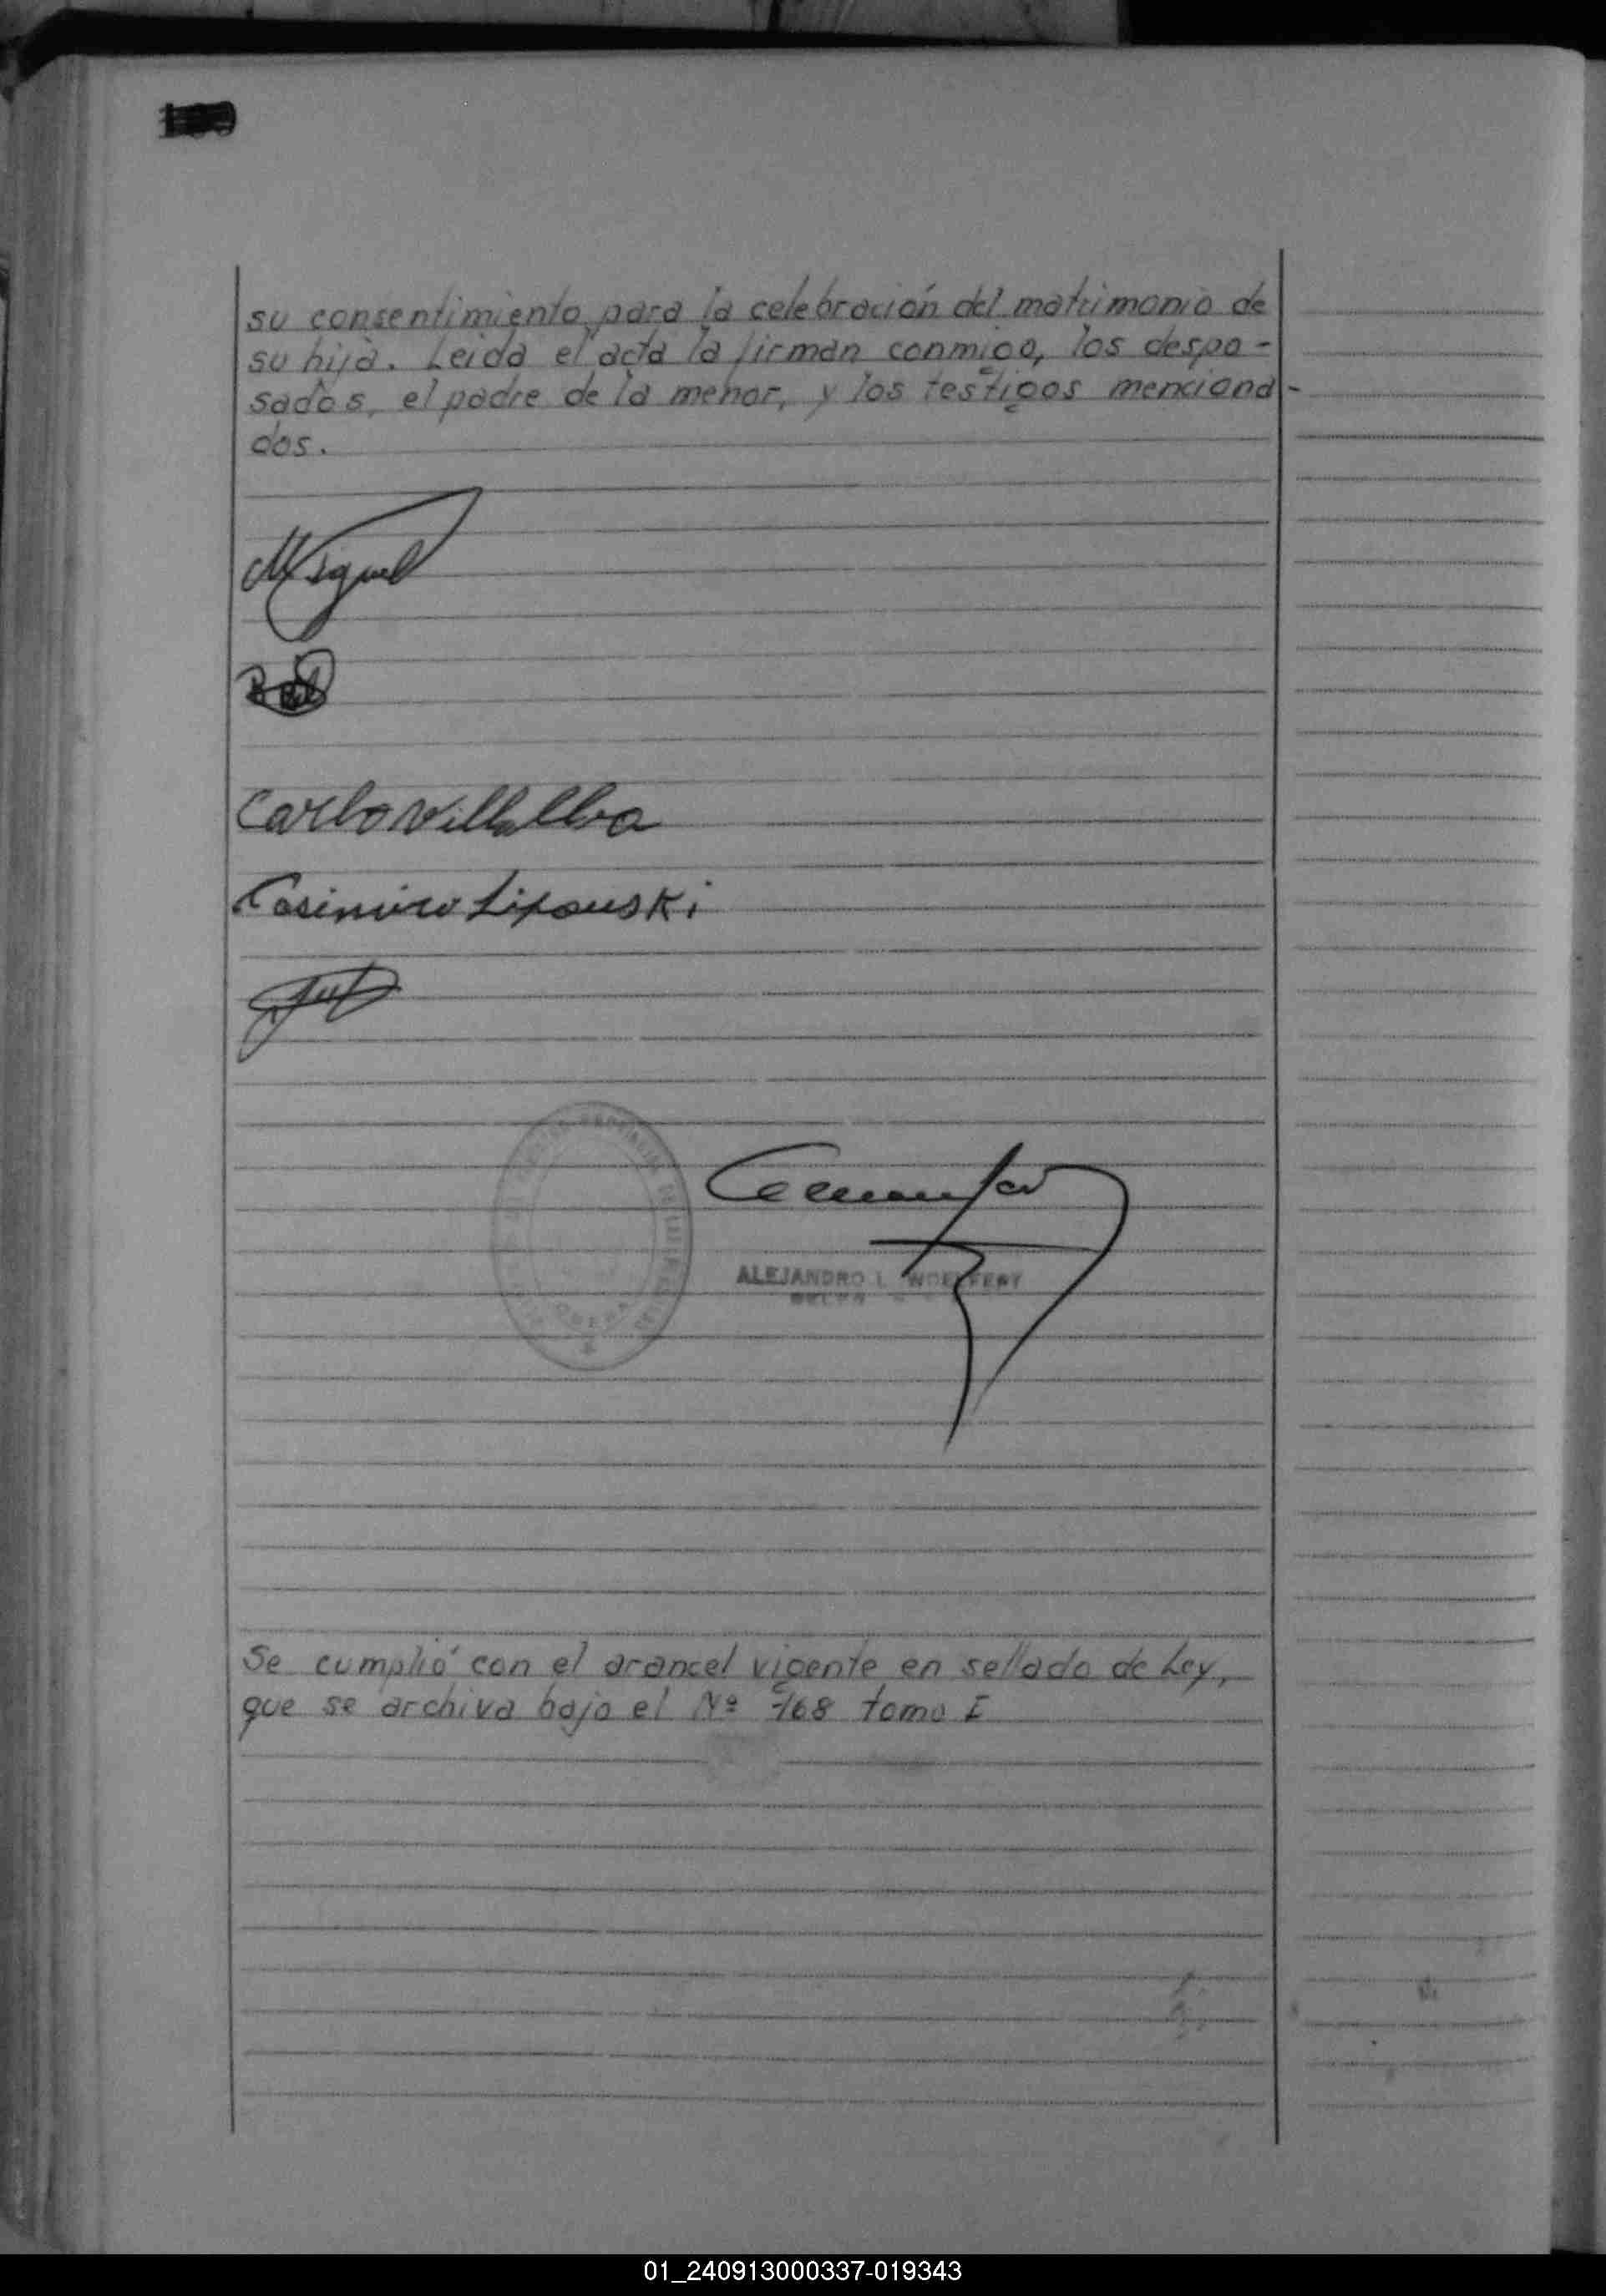 su consentimiento para la celebración del matrimonio de
su hija. Leida el acta la firman conmigo, los despo-
sados, el padre de la menor, y los testigos menciona-
dos.
Miguel
Carlos Villalba
Casimiro Lipouski
ALEJANDRO L.
Se cumplió con el arancel vigente en sellado de Ley,
que se archiva bajo el Nº 168 tomo I
01_240913000337-019343